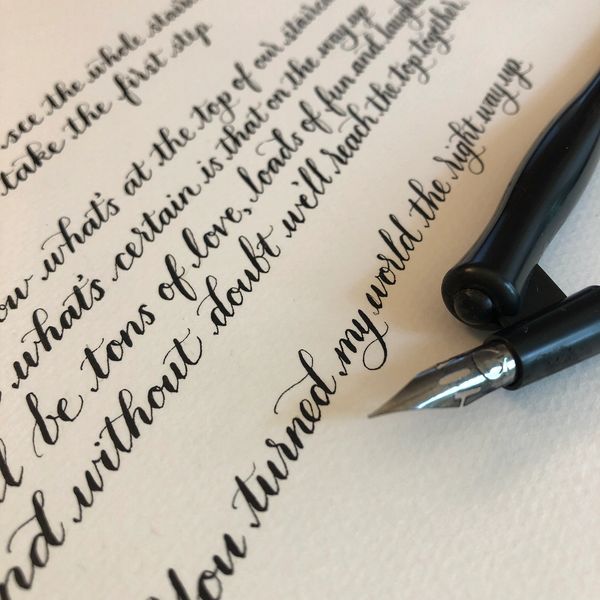 see the whole
take the first step
what's at the top of our
what's certain is that on the way up
be tons of love, loads of fun and
without doubt we'll reach the top together.
You turned my world the right way up.